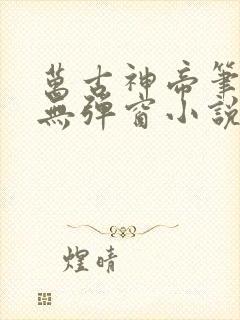 萬古神帝筆
無彈窗小說
煌晴